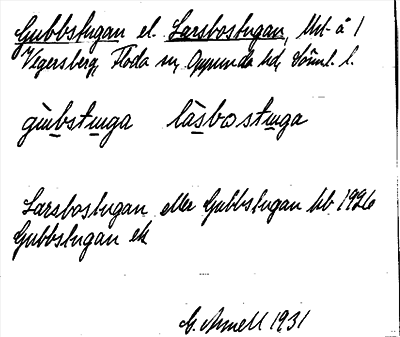 Gubbstugan el. Larsbostugan, Uvt. å 1
Vegersberg, Floda sn, Oppunda hd, Söml. l.
gùbstuga làsbostuga
Larsbostugan eller Gubbstugan hb 1926
Gubbstugan ek
G. Annell 1931